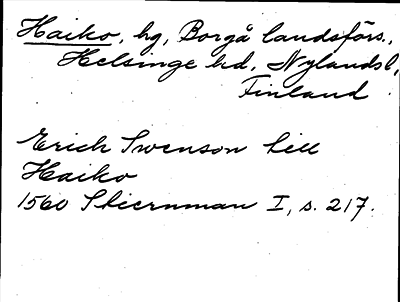 Haiko, hg, Borgå landsförs.,
Helsinge hd, Nylands l,
Finland
Erich Swenson till
Haiko
1560 Stiernman I, s. 217.